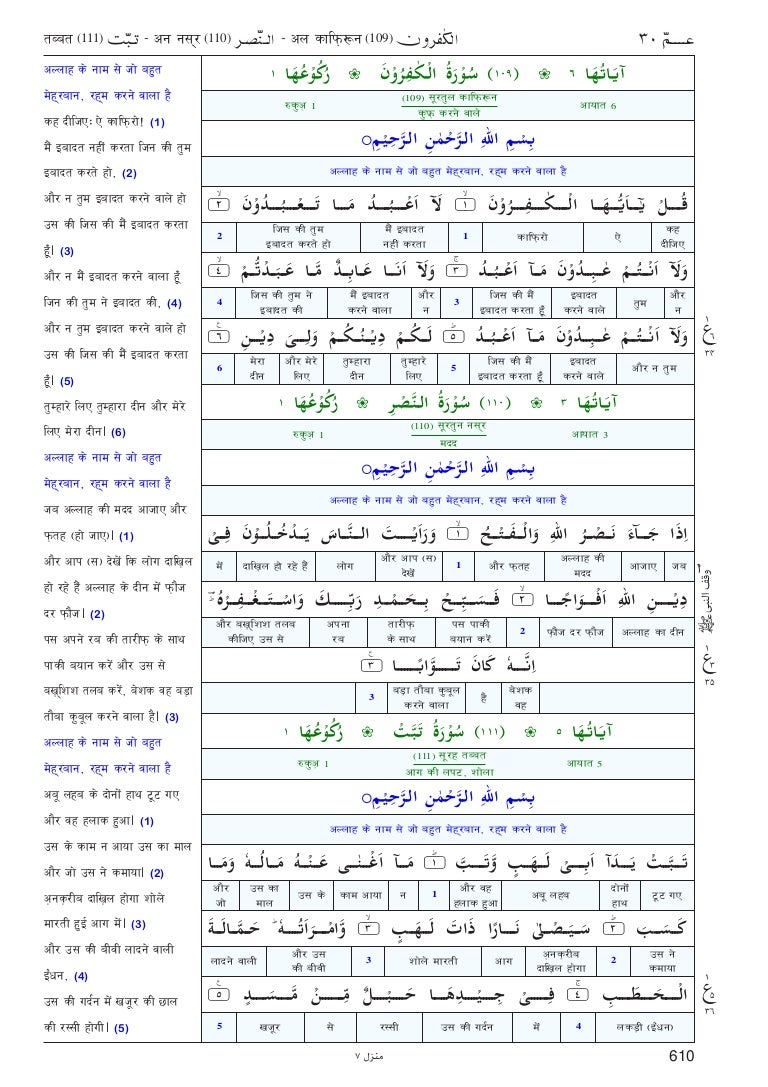 तब्बत (111) تبّت - अन नस्र (110) النّصر - अल काफ़िरून (109) الكٰفرون
عـــمّ ٣٠
अल्लाह के नाम से जो बहुत
मेहरबान, रहम करने वाला है
कह दीजिए: ऐ काफ़िरो! (1)
मैं इबादत नहीं करता जिन की तुम
इबादत करते हो, (2)
और न तुम इबादत करने वाले हो
उस की जिस की मैं इबादत करता
हूँ। (3)
और न मैं इबादत करने वाला हूँ
जिन की तुम ने इबादत की, (4)
और न तुम इबादत करने वाले हो
उस की जिस की मैं इबादत करता
हूँ। (5)
तुम्हारे लिए तुम्हारा दीन और मेरे
लिए मेरा दीन। (6)
अल्लाह के नाम से जो बहुत
मेहरबान, रहम करने वाला है
जब अल्लाह की मदद आजाए और
फ़तह (हो जाए)। (1)
और आप (स) देखें कि लोग दाख़िल
हो रहे हैं अल्लाह के दीन में फ़ौज
दर फ़ौज। (2)
पस अपने रब की तारीफ़ के साथ
पाकी बयान करें और उस से
बख़्शिश तलब करें, बेशक वह बड़ा
तौबा क़ुबूल करने वाला है। (3)
अल्लाह के नाम से जो बहुत
मेहरबान, रहम करने वाला है
अबू लहब के दोनों हाथ टूट गए
और वह हलाक हुआ। (1)
उस के काम न आया उस का माल
और जो उस ने कमाया। (2)
अनक़रीब दाख़िल होगा शोले
मारती हुई आग में। (3)
और उस की बीवी लादने वाली
ईंधन, (4)
उस की गर्दन में खजूर की छाल
की रस्सी होगी। (5)
اٰيَاتُهَا ٦ ❀ (١٠٩) سُوْرَةُ الْكٰفِرُوْنَ ❀ رُكُوْعُهَا ١
रुकुअ़ 1 (109) सूरतुल काफ़िरून आयात 6
कुफ़्र करने वाले
بِسْمِ اللهِ الرَّحْمٰنِ الرَّحِيْمِ○
अल्लाह के नाम से जो बहुत मेहरबान, रहम करने वाला है
قُلْ يٰۤاَيُّهَا الْكٰفِرُوْنَ ۙ ١ لَاۤ اَعْبُدُ مَا تَعْبُدُوْنَ ۙ ٢
2 जिस की तुम इबादत करते हो मैं इबादत नहीं करता 1 काफ़िरो ऐ कह दीजिए
وَلَاۤ اَنْتُمْ عٰبِدُوْنَ مَاۤ اَعْبُدُ ۚ ٣ وَلَاۤ اَنَا عَابِدٌ مَّا عَبَدْتُّمْ ۙ ٤
4 जिस की तुम ने इबादत की मैं इबादत करने वाला और न 3 जिस की मैं इबादत करता हूँ इबादत करने वाले तुम और न
وَلَاۤ اَنْتُمْ عٰبِدُوْنَ مَاۤ اَعْبُدُ ؕ ٥ لَكُمْ دِيْنُكُمْ وَلِيَ دِيْنِ ۧ ٦
6 मेरा दीन और मेरे लिए तुम्हारा दीन तुम्हारे लिए 5 जिस की मैं इबादत करता हूँ इबादत करने वाले और न तुम
اٰيَاتُهَا ٣ ❀ (١١٠) سُوْرَةُ النَّصْرِ ❀ رُكُوْعُهَا ١
रुकुअ़ 1 (110) सूरतुन नस्र आयात 3
मदद
بِسْمِ اللهِ الرَّحْمٰنِ الرَّحِيْمِ○
अल्लाह के नाम से जो बहुत मेहरबान, रहम करने वाला है
اِذَا جَآءَ نَصْرُ اللهِ وَالْفَتْحُ ۙ ١ وَرَاَيْتَ النَّاسَ يَدْخُلُوْنَ فِيْ
में दाख़िल हो रहे हैं लोग और आप (स) देखें 1 और फ़तह अल्लाह की मदद आजाए जब
دِيْنِ اللهِ اَفْوَاجًا ۙ ٢ فَسَبِّحْ بِحَمْدِ رَبِّكَ وَاسْتَغْفِرْهُ ؕ
और बख़्शिश तलब कीजिए उस से अपना रब तारीफ़ के साथ पस पाकी बयान करें 2 फ़ौज दर फ़ौज अल्लाह का दीन
اِنَّهٗ كَانَ تَوَّابًا ۧ ٣
3 बड़ा तौबा क़ुबूल करने वाला है बेशक वह
اٰيَاتُهَا ٥ ❀ (١١١) سُوْرَةُ تَبَّتْ ❀ رُكُوْعُهَا ١
रुकुअ़ 1 (111) सूरह तब्बत आयात 5
आग की लपट, शोला
بِسْمِ اللهِ الرَّحْمٰنِ الرَّحِيْمِ○
अल्लाह के नाम से जो बहुत मेहरबान, रहम करने वाला है
تَبَّتْ يَدَاۤ اَبِيْ لَهَبٍ وَّتَبَّ ؕ ١ مَاۤ اَغْنٰى عَنْهُ مَالُهٗ وَمَا
और जो उस का माल उस के काम आया न 1 और वह हलाक हुआ अबू लहब दोनों हाथ टूट गए
كَسَبَ ؕ ٢ سَيَصْلٰى نَارًا ذَاتَ لَهَبٍ ۙ ٣ وَّامْرَاَتُهٗ ؕ حَمَّالَةَ
लादने वाली और उस की बीवी 3 शोले मारती आग अनक़रीब दाख़िल होगा 2 उस ने कमाया
الْحَطَبِ ۚ ٤ فِيْ جِيْدِهَا حَبْلٌ مِّنْ مَّسَدٍ ۧ ٥
5 खजूर से रस्सी उस की गर्दन में 4 लकड़ी (ईंधन)
١ ع ٦ ٣٤
وقف النبي ﷺ
ع ٣ ٣٥
١ ع ٥ ٣٦
منزل ٧
610